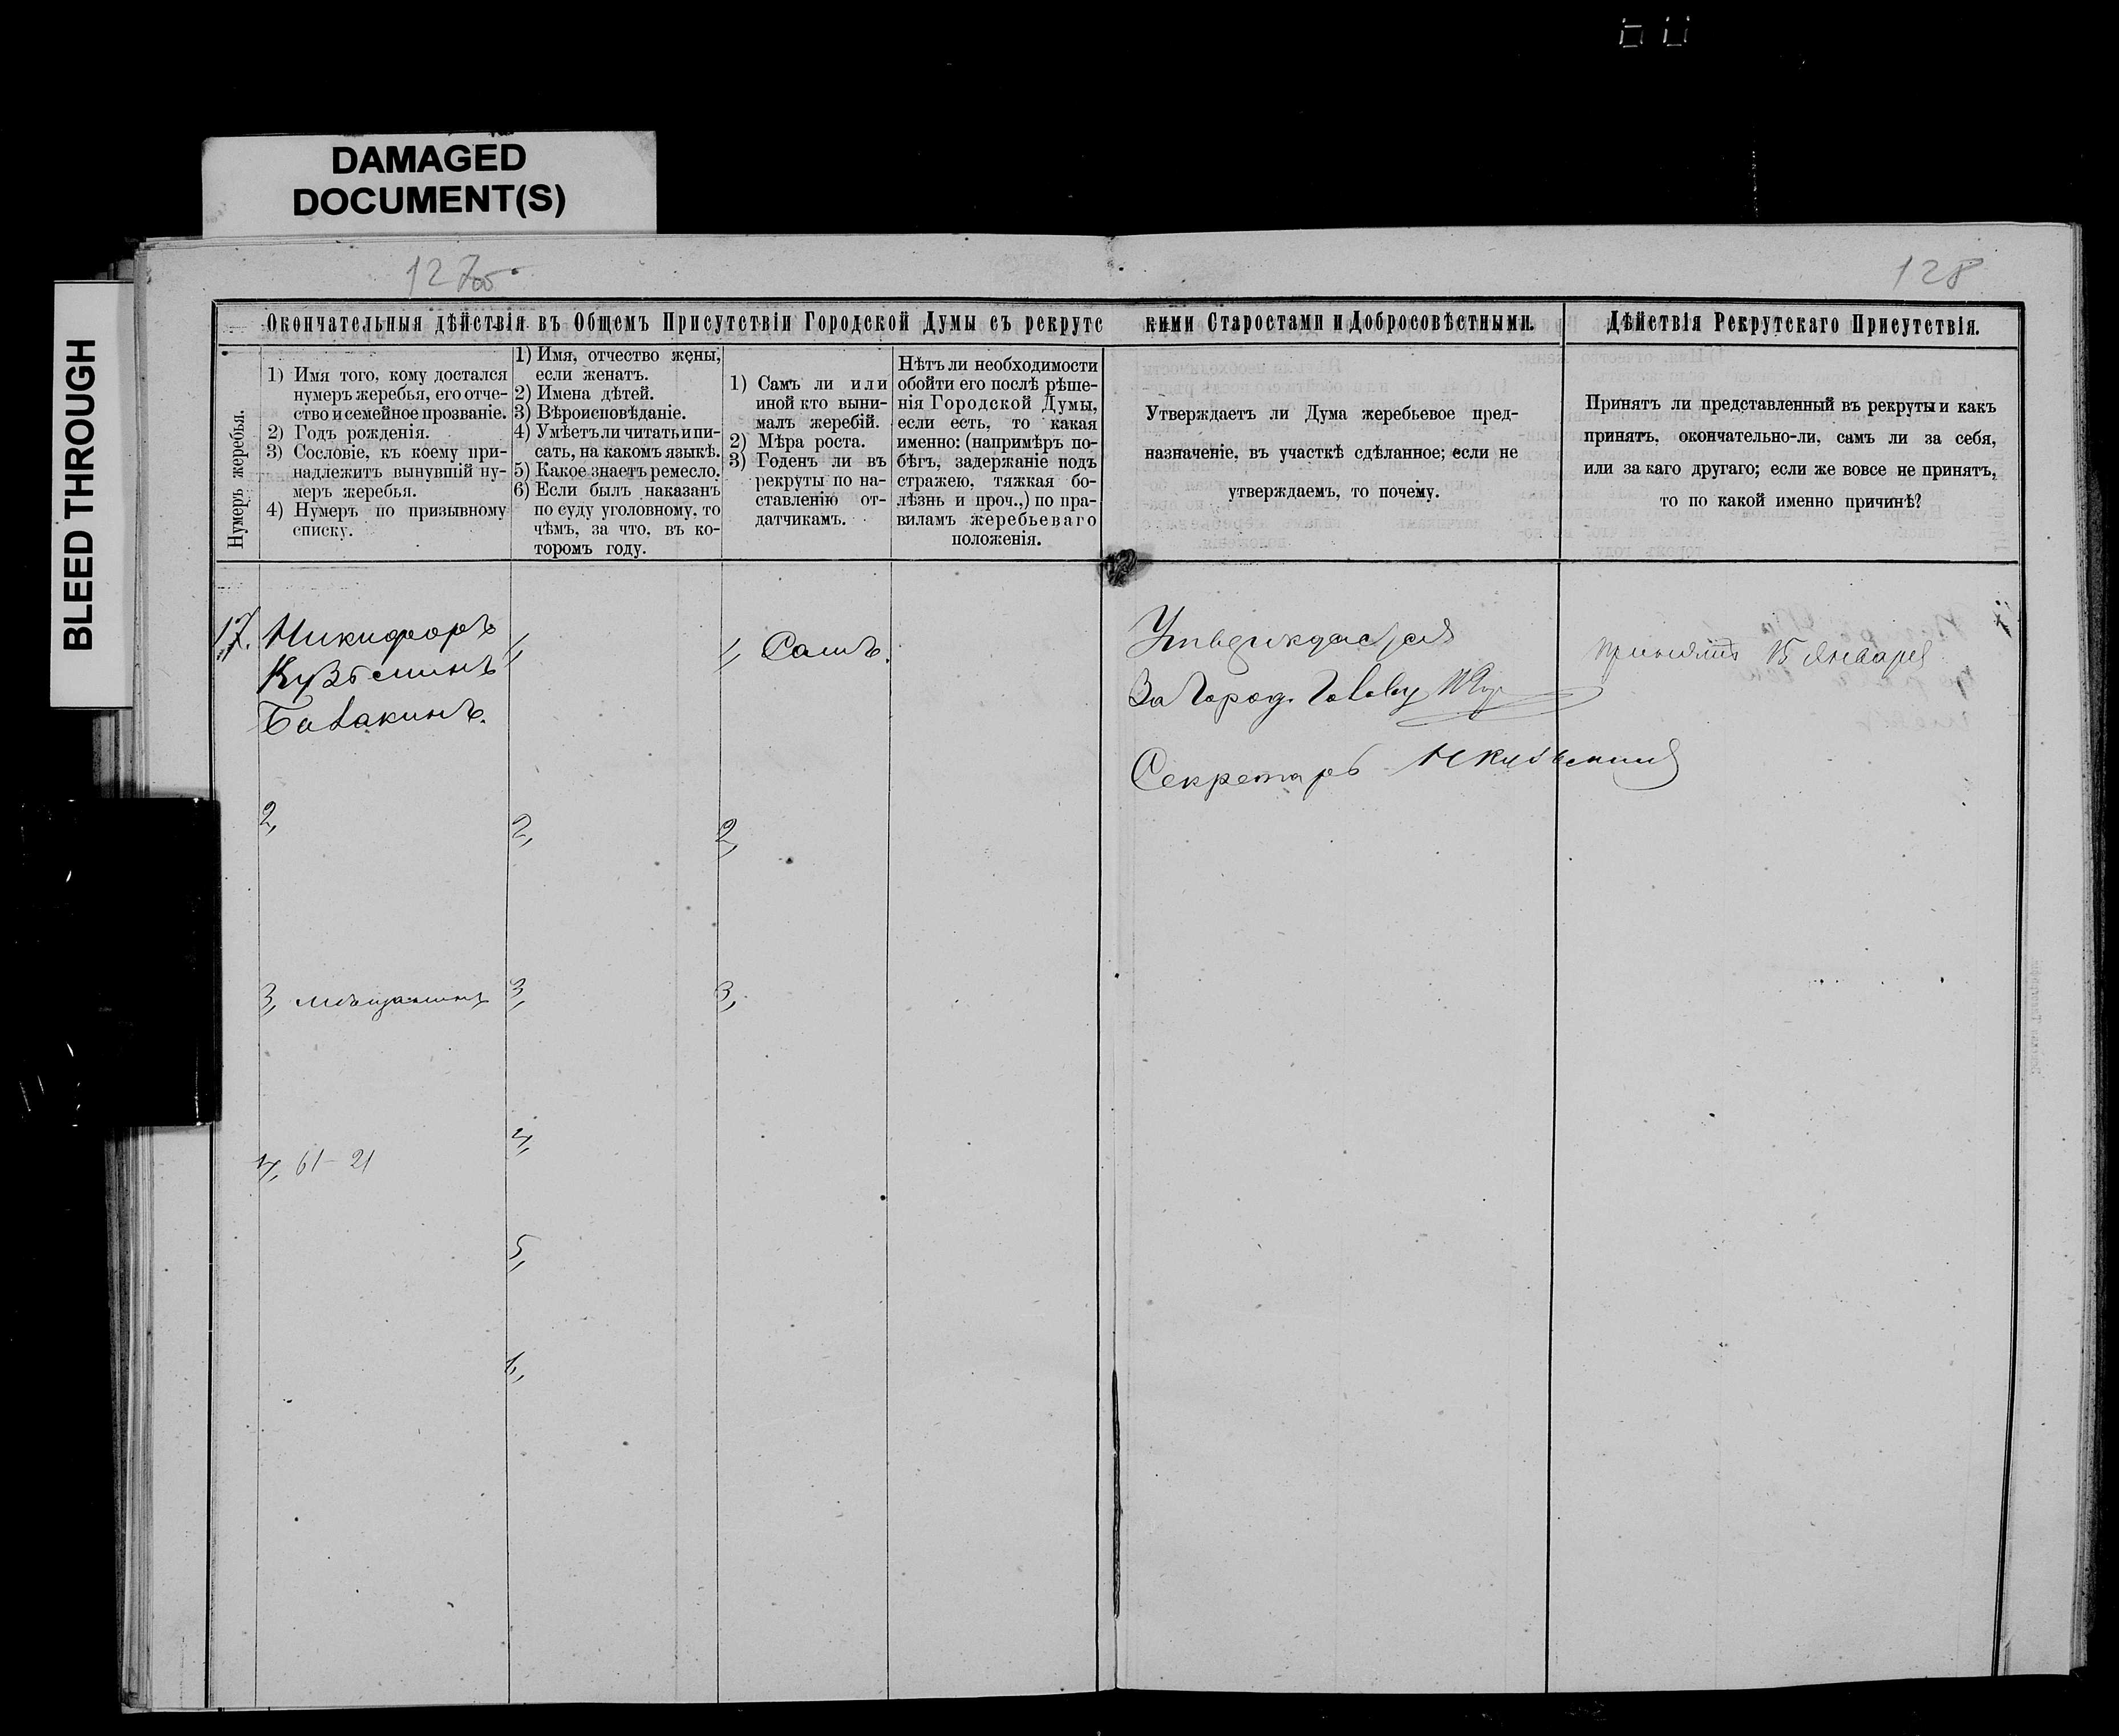 DAMAGED
DOCUMENT(S)
BLEED THROUGH
127об
128
Окончательныя дѣйствія въ Общемъ Присутствіи Городской Думы съ рекрутс
кими Старостами и Добросовѣстными.
Дѣйствія Рекрутскаго Присутствія.
Нумеръ жеребья.
1) Имя того, кому достался
нумеръ жеребья, его отче-
ство и семейное прозваніе.
2) Годъ рожденія.
3) Сословіе, къ коему при-
надлежитъ вынувшій ну-
меръ жеребья.
4) Нумеръ по призывному
списку.
1) Имя, отчество жены,
если женатъ.
2) Имена дѣтей.
3) Вѣроисповѣданіе.
4) Умѣетъ ли читать и пи-
сать, на какомъ языкѣ.
5) Какое знаетъ ремесло.
6) Если былъ наказанъ
по суду уголовному, то
чѣмъ, за что, въ ко-
торомъ году.
1) Самъ ли или
иной кто выни-
малъ жеребій.
2) Мѣра роста.
3) Годенъ ли въ
рекруты по на-
ставленію от-
датчикамъ.
Нѣтъ ли необходимости
обойти его послѣ рѣше-
нія Городской Думы,
если есть, то какая
именно: (напримѣръ по-
бѣгъ, задержаніе подъ
стражею, тяжкая бо-
лѣзнь и проч.,) по пра-
виламъ жеребьеваго
положенія.
Утверждаетъ ли Дума жеребьевое пред-
назначеніе, въ участкѣ сдѣланное; если не
утверждаемъ, то почему.
Принятъ ли представленный въ рекруты и какъ
принятъ, окончательно-ли, самъ ли за себя,
или за каго другаго; если же вовсе не принятъ,
то по какой именно причинѣ?
17. Никифоръ
Кузьминъ
Балакинъ.
2,
3, мѣщанинъ
4, 61-21
1,
2,
3,
4,
5,
6,
1, Самъ.
2,
3,
Утверждается
За Город. Голову
Секретарь
принятъ 15 Января